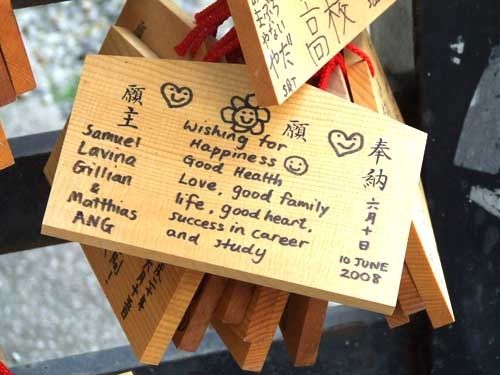 願主
Samuel
Lavina
Gillian
&
Matthias
ANG
Wishing for
Happiness
Good Health
Love, good family
life, good heart,
success in career
and study
願
奉納
六月十日
10 JUNE
2008
高校
やだ